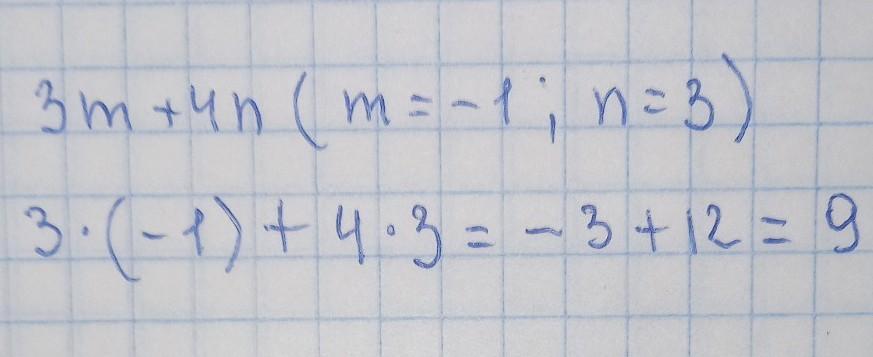 3m+4n ( m=-1; n=3)
3·(-1)+4·3=-3+12=9